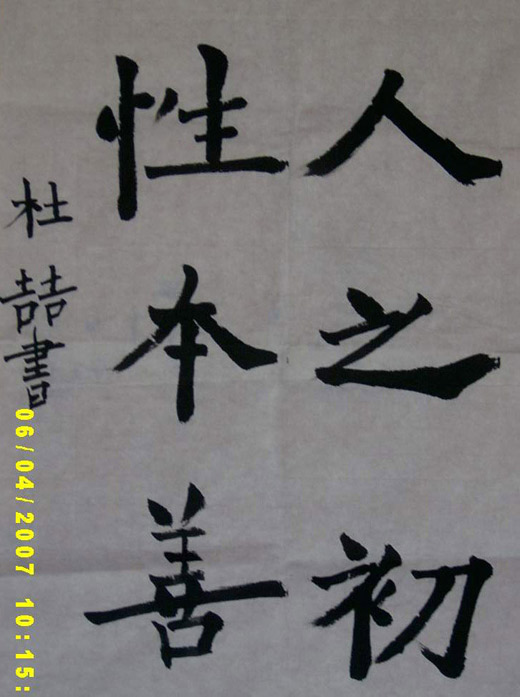 人之初
性本善
杜喆書
06/04/2007 10:15: